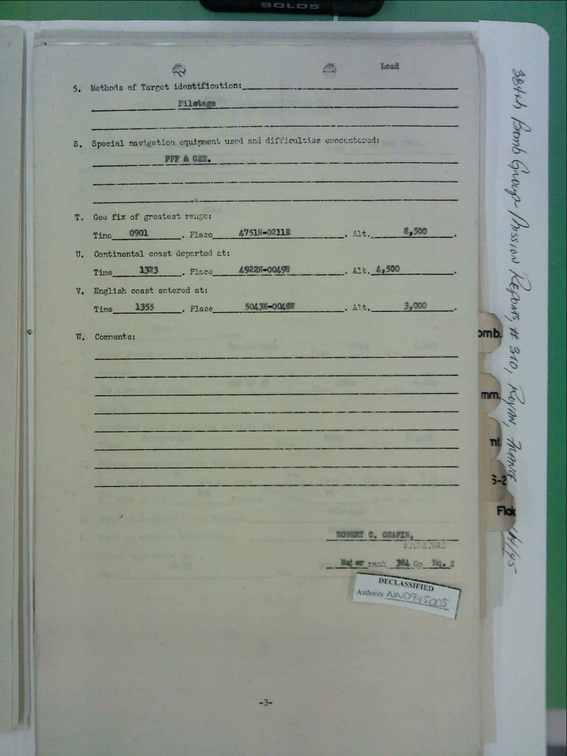 SOLO5
Lead
5. Methods of Target identification:
Pilotage
S. Special navigation equipment used and difficulties encountered:
PFF & GEE.
T. Gee fix of greatest range:
Time 0901 . Place 4751N-0211E . Alt. 8,500 .
U. Continental coast departed at:
Time 1323 . Place 4922N-0049W . Alt. 4,500 .
V. English coast entered at:
Time 1355 . Place 5043N-0048W . Alt. 3,000 .
W. Comments:
ROBERT C. CHAPIN,
SIGNATURE
Major rank 384 Gp Hq. S
DECLASSIFIED
Authority NND945005
-3-
384th Bomb Group Mission Reports, # 310, Royan, France
omb.
mm.
nt
S-2
Flak